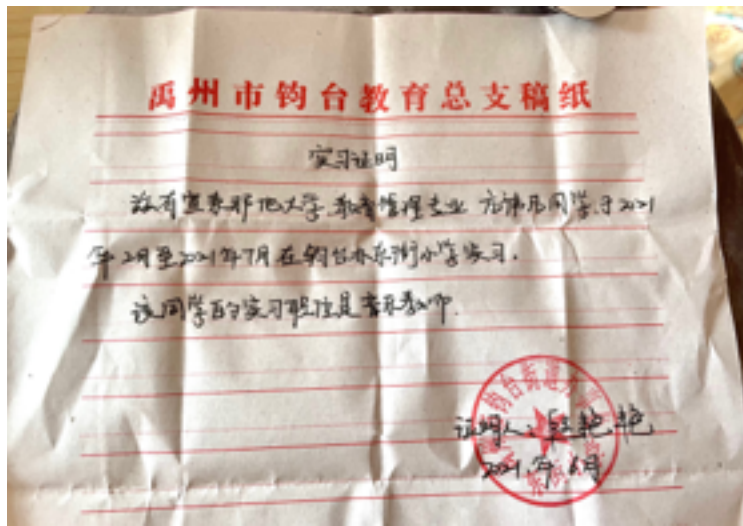 禹州市钧台教育总支稿纸
实习证明
兹有 大学 教育管理专业 同学,于2021
年2月至2021年7月在钧台办东街小学实习.
该同学的实习职位是音乐教师.
证明人: 艳艳
2021.年6月